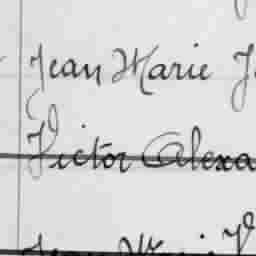 Jean Marie J
Victor Alexa